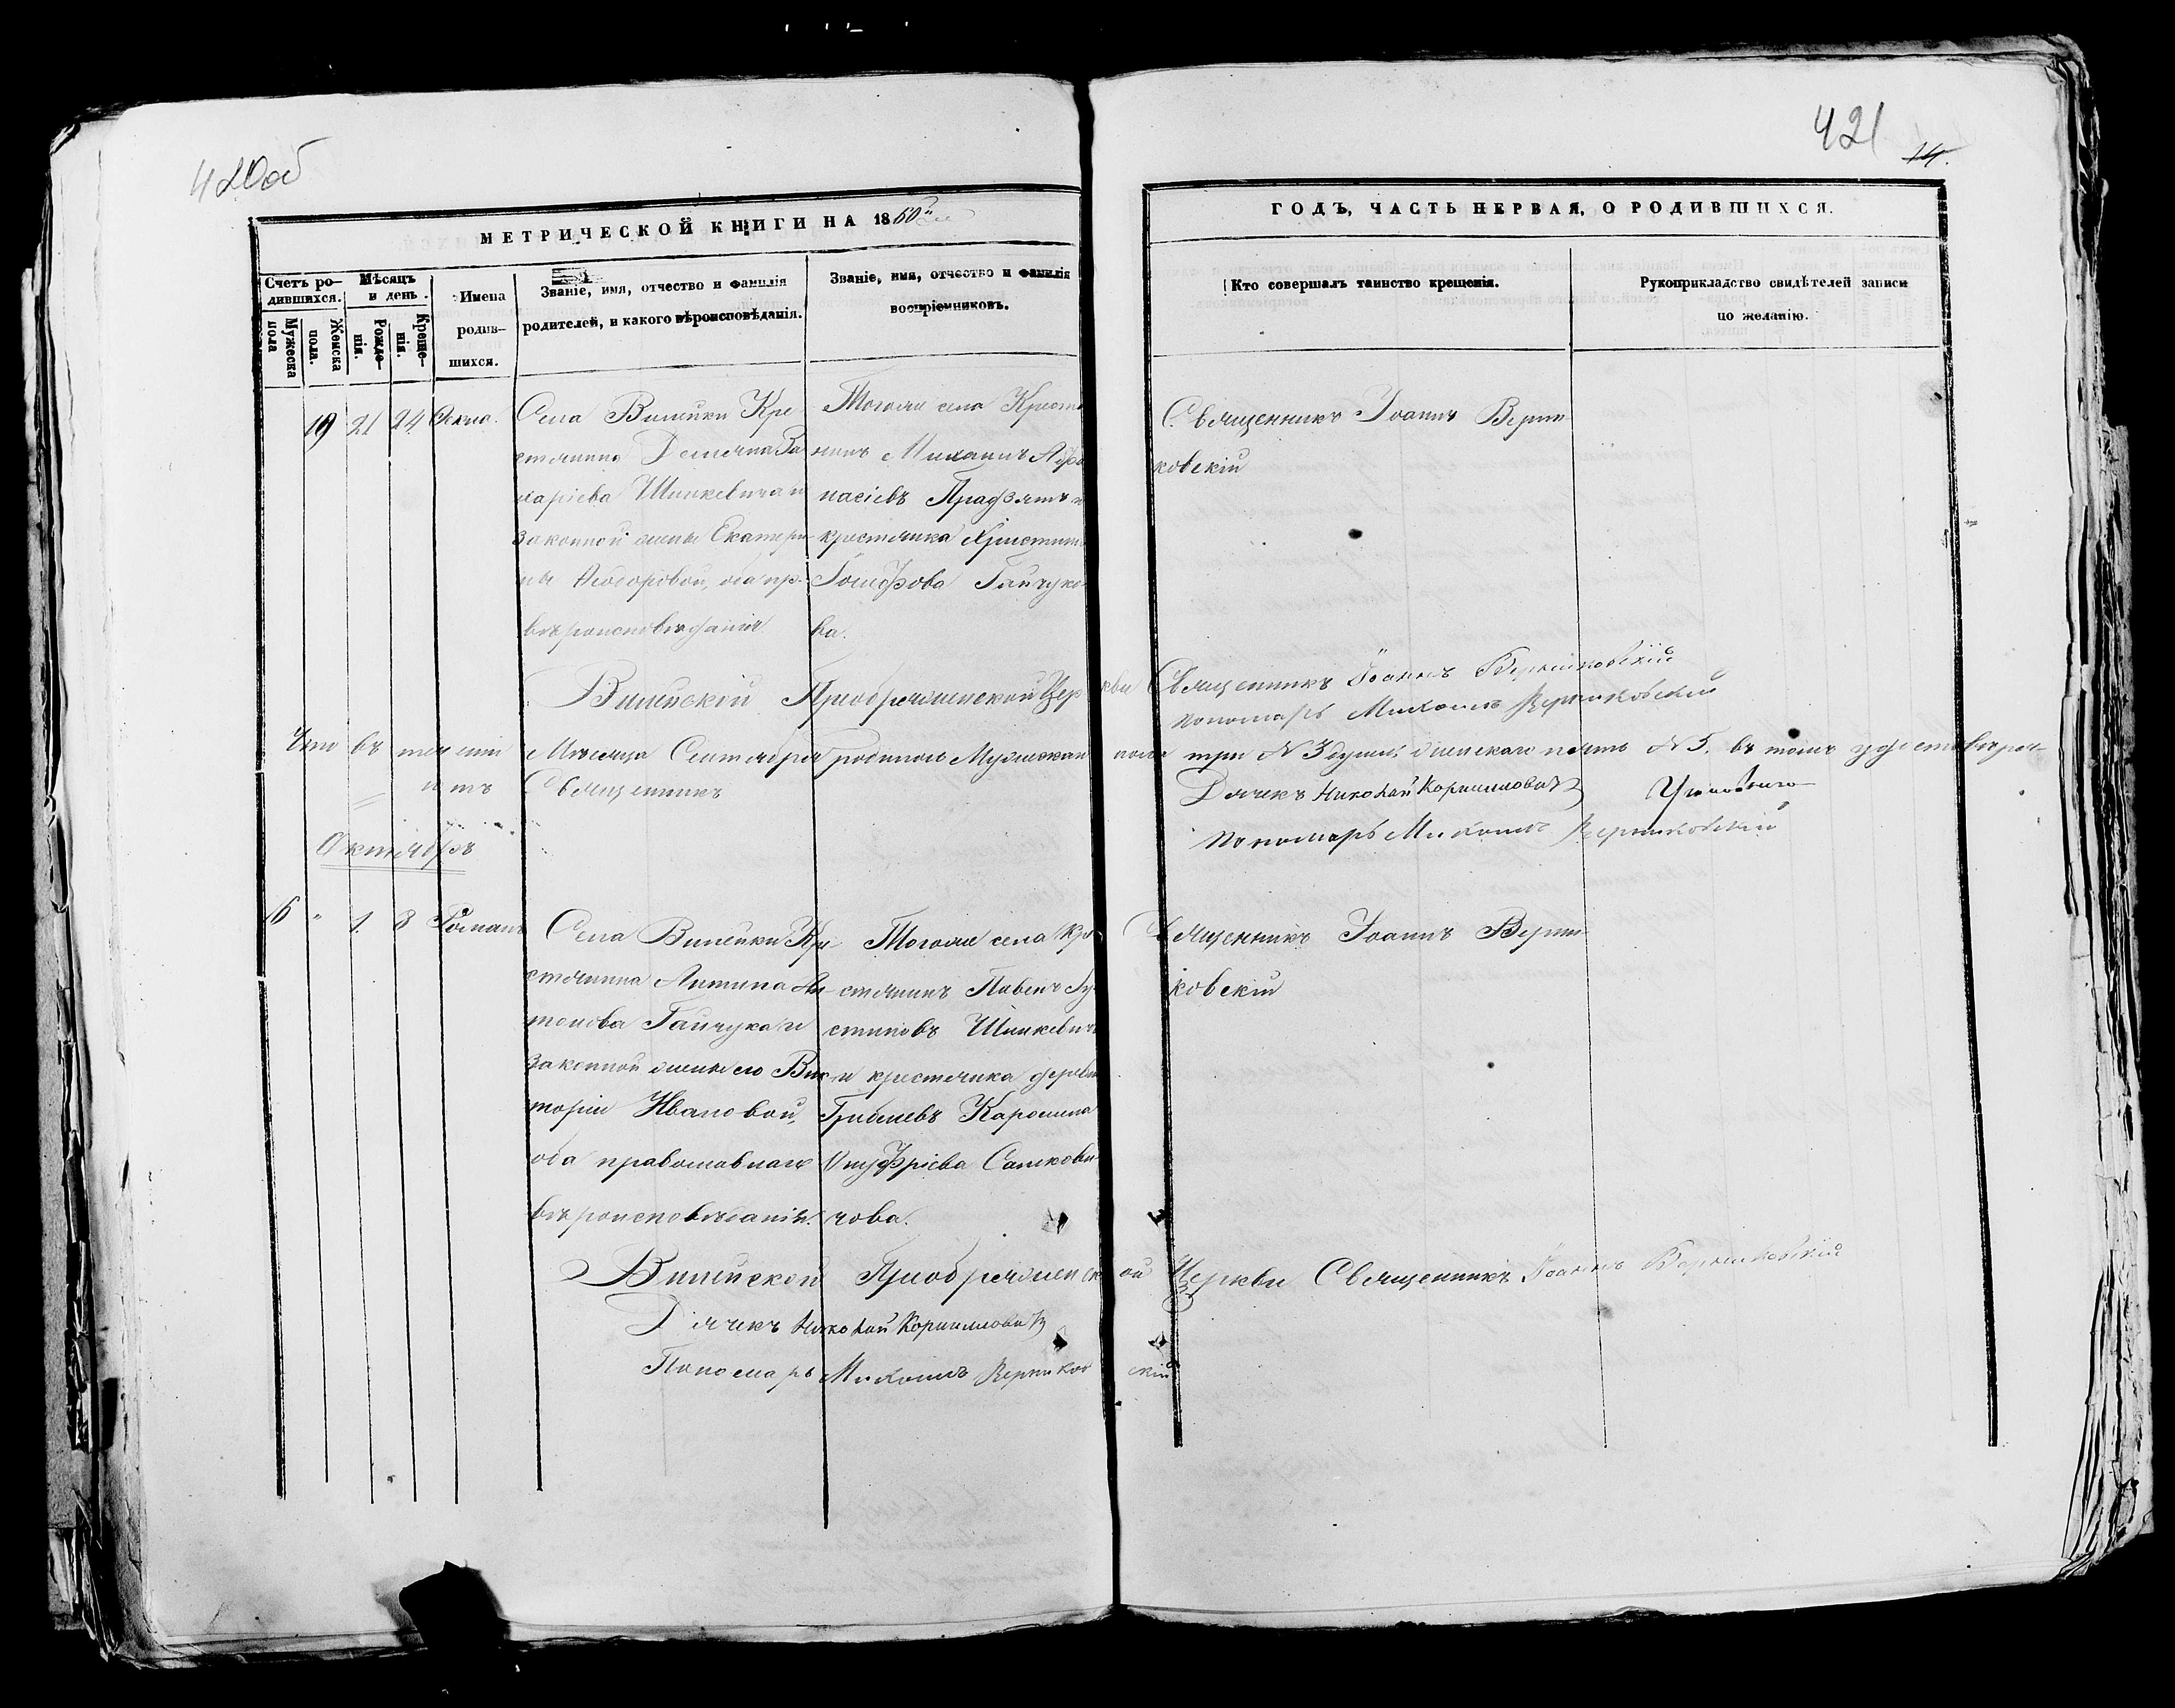 420об
421
14.
МЕТРИЧЕСКОЙ КНИГИ НА 1860й
ГОДЪ, ЧАСТЬ ПЕРВАЯ, О РОДИВШИХСЯ.
Счетъ ро-
дившихся.
Мужеска
пола
Женска
пола.
Мѣсяцъ
и день.
Рожде-
нія.
Креще-
нія.
Имена
родив-
шихся.
Званіе, имя, отчество и фамилія
родителей, и какого вѣроисповѣданія.
Званіе, имя, отчество и фамилія
воспріемниковъ.
Кто совершалъ таинство крещенія.
Рукоприкладство свидѣтелей записи
по желанію.
19 21 24
Села Вилейки Кре
стянина За
харіева Шинкевича и
законной жены Екатери
ны Ѳеодоровой, оба пр.
вѣроисповѣданія
Тогоже села Крестя
нинъ Михаилъ Афа
насіевъ и
крестянка Христина
Гайчуко
ва.
Священникъ Іоаннъ Верни
ковскій
Вилейской Преображенской Церкви Священникъ Іоаннъ Верниковскій
Пономарь Михаилъ Верниковскій
Что въ теченіи Мѣсяца Сентября родилось Мужескаго пола три № 3 души, женскаго пять № 5. въ томъ удостовѣря-
ютъ Священникъ
Дячекъ Николай Корнилович
Пономарь Михаилъ Верниковскій
Октябрь
16 " 1. 8 Романъ
Села Вилейки Кре
стянина Антина Ан
тонова Гайчука и
законной жены его Вик
торіи Ивановой,
оба православнаго
вѣроисповѣданія.
Тогоже села Кре
стянинъ Павелъ Іу
стиновъ Шинкевичъ
и крестянка деревни
Каролина
Онуфріева Сашкови
чова.
Священникъ Іоаннъ Верни
ковскій
Вилейской Преображенской Церкви Священникъ Іоаннъ Верниковскій
Дячекъ Николай Корнилович
Пономарь Михаилъ Верниковскій